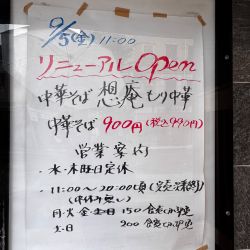 9/5(金) 11:00
リニューアル Open
中華そば 想庵 もり中華
中華そば 900円(税込990円)
営業案内
・水・木曜日定休
・11:00〜20:00頃(完売次第終了)
(中休み無し)
月・火・金・土・日 150食
土・日 200食